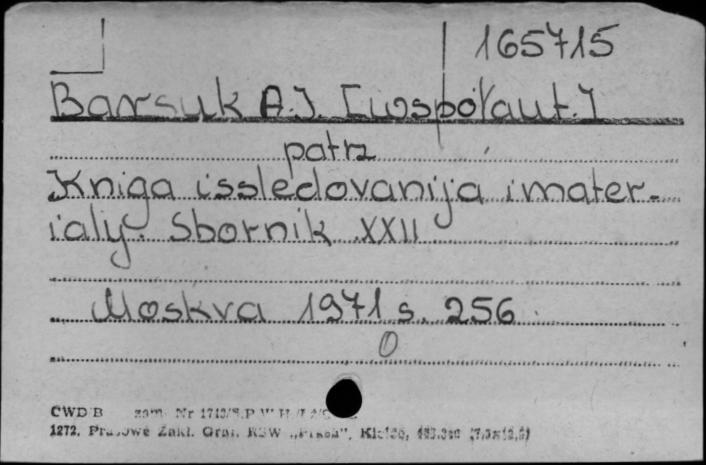 165715
Barsuk A.J. [współaut.]
patrz
Kniga issledovanija i mater-
ialy. Sbornik XXII
Moskva 1971 s. 256
0
CWD B zam. Nr
1272. Prasowe Zakł. Graf. RSW „Prasa",